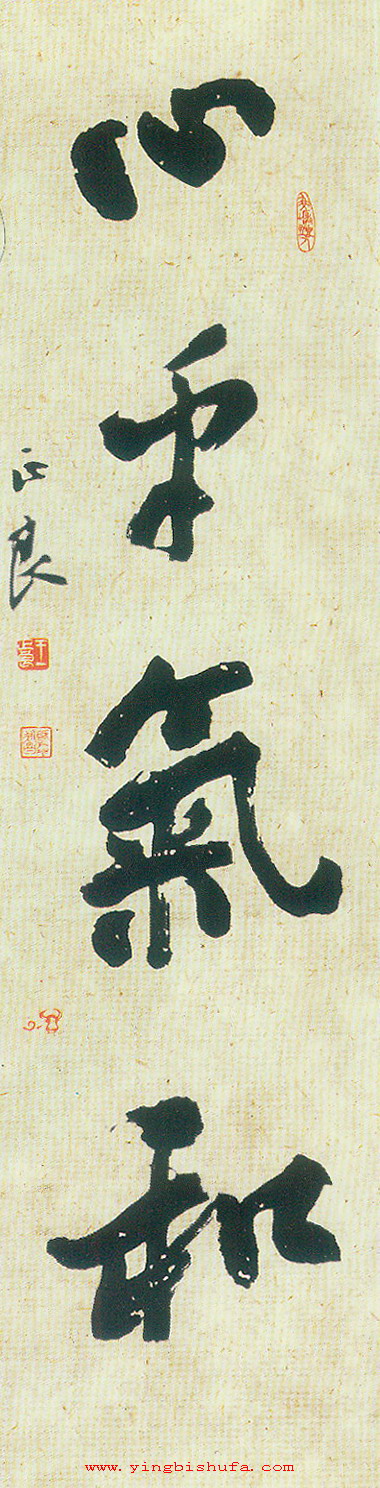 心平氣和
正良
www.yingbishufa.com